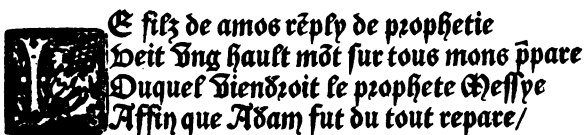 LE filz de amos rēply de prophetie
Veit vng hault mōt ſur tous mons p̄pare
Duquel viendroit le prophete Meſſye
Affin que Adam fut du tout repare/